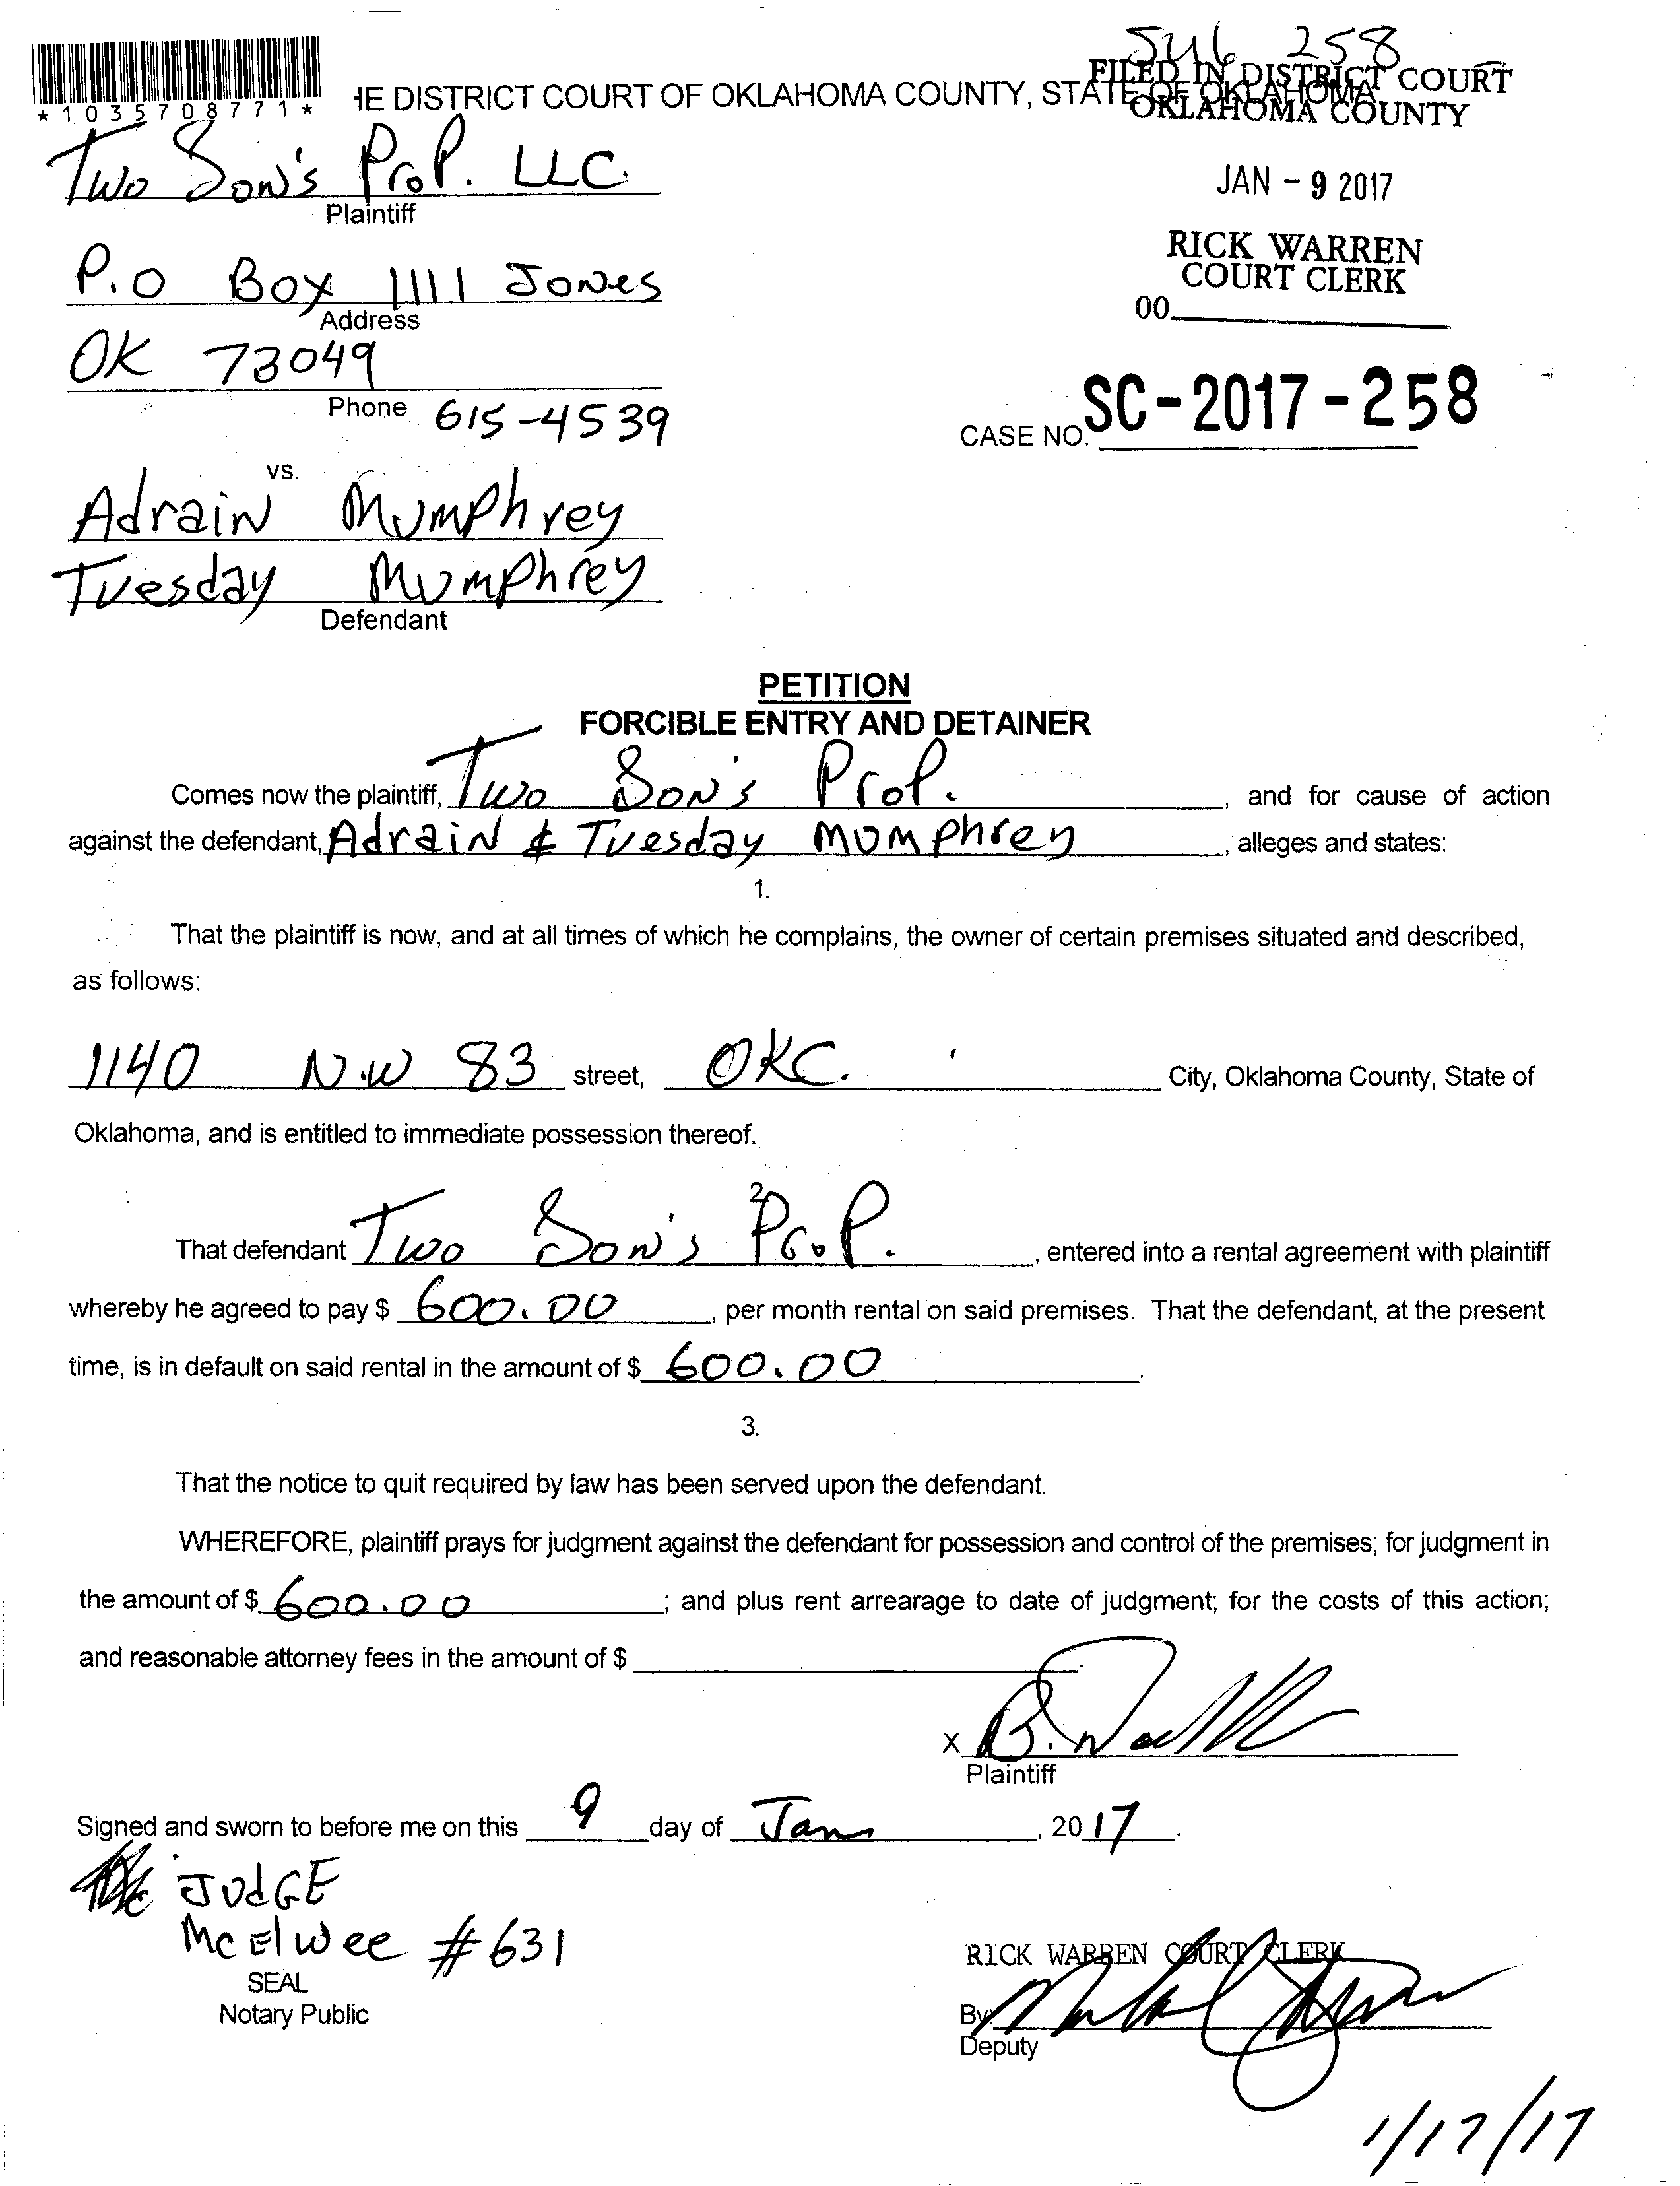 546 258
FILED IN DISTRICT COURT
OKLAHOMA COUNTY
*1035708771*
HE DISTRICT COURT OF OKLAHOMA COUNTY, STATE OF OKLAHOMA
Two Son's Prop. LLC.
Plaintiff
JAN - 9 2017
P.O Box 1111 Jones
Address
RICK WARREN
COURT CLERK
00
OK 73049
Phone 615-4539
CASE NO. SC-2017-258
vs.
Adrain Mumphrey
Tuesday Mumphrey
Defendant
PETITION
FORCIBLE ENTRY AND DETAINER
Comes now the plaintiff, Two Son's Prop. , and for cause of action
against the defendant, Adrain & Tuesday Mumphrey , alleges and states:
1.
That the plaintiff is now, and at all times of which he complains, the owner of certain premises situated and described,
as follows:
1140 N.W 83 street, OKC. City, Oklahoma County, State of
Oklahoma, and is entitled to immediate possession thereof.
2.
That defendant Two Son's Prop. , entered into a rental agreement with plaintiff
whereby he agreed to pay $ 600.00 , per month rental on said premises. That the defendant, at the present
time, is in default on said rental in the amount of $ 600.00 .
3.
That the notice to quit required by law has been served upon the defendant.
WHEREFORE, plaintiff prays for judgment against the defendant for possession and control of the premises; for judgment in
the amount of $ 600.00 ; and plus rent arrearage to date of judgment; for the costs of this action;
and reasonable attorney fees in the amount of $ .
X
Plaintiff
Signed and sworn to before me on this 9 day of Jan , 20 17 .
JUdGE
McElwee #631
SEAL
Notary Public
RICK WARREN COURT CLERK
By:
Deputy
1/17/17